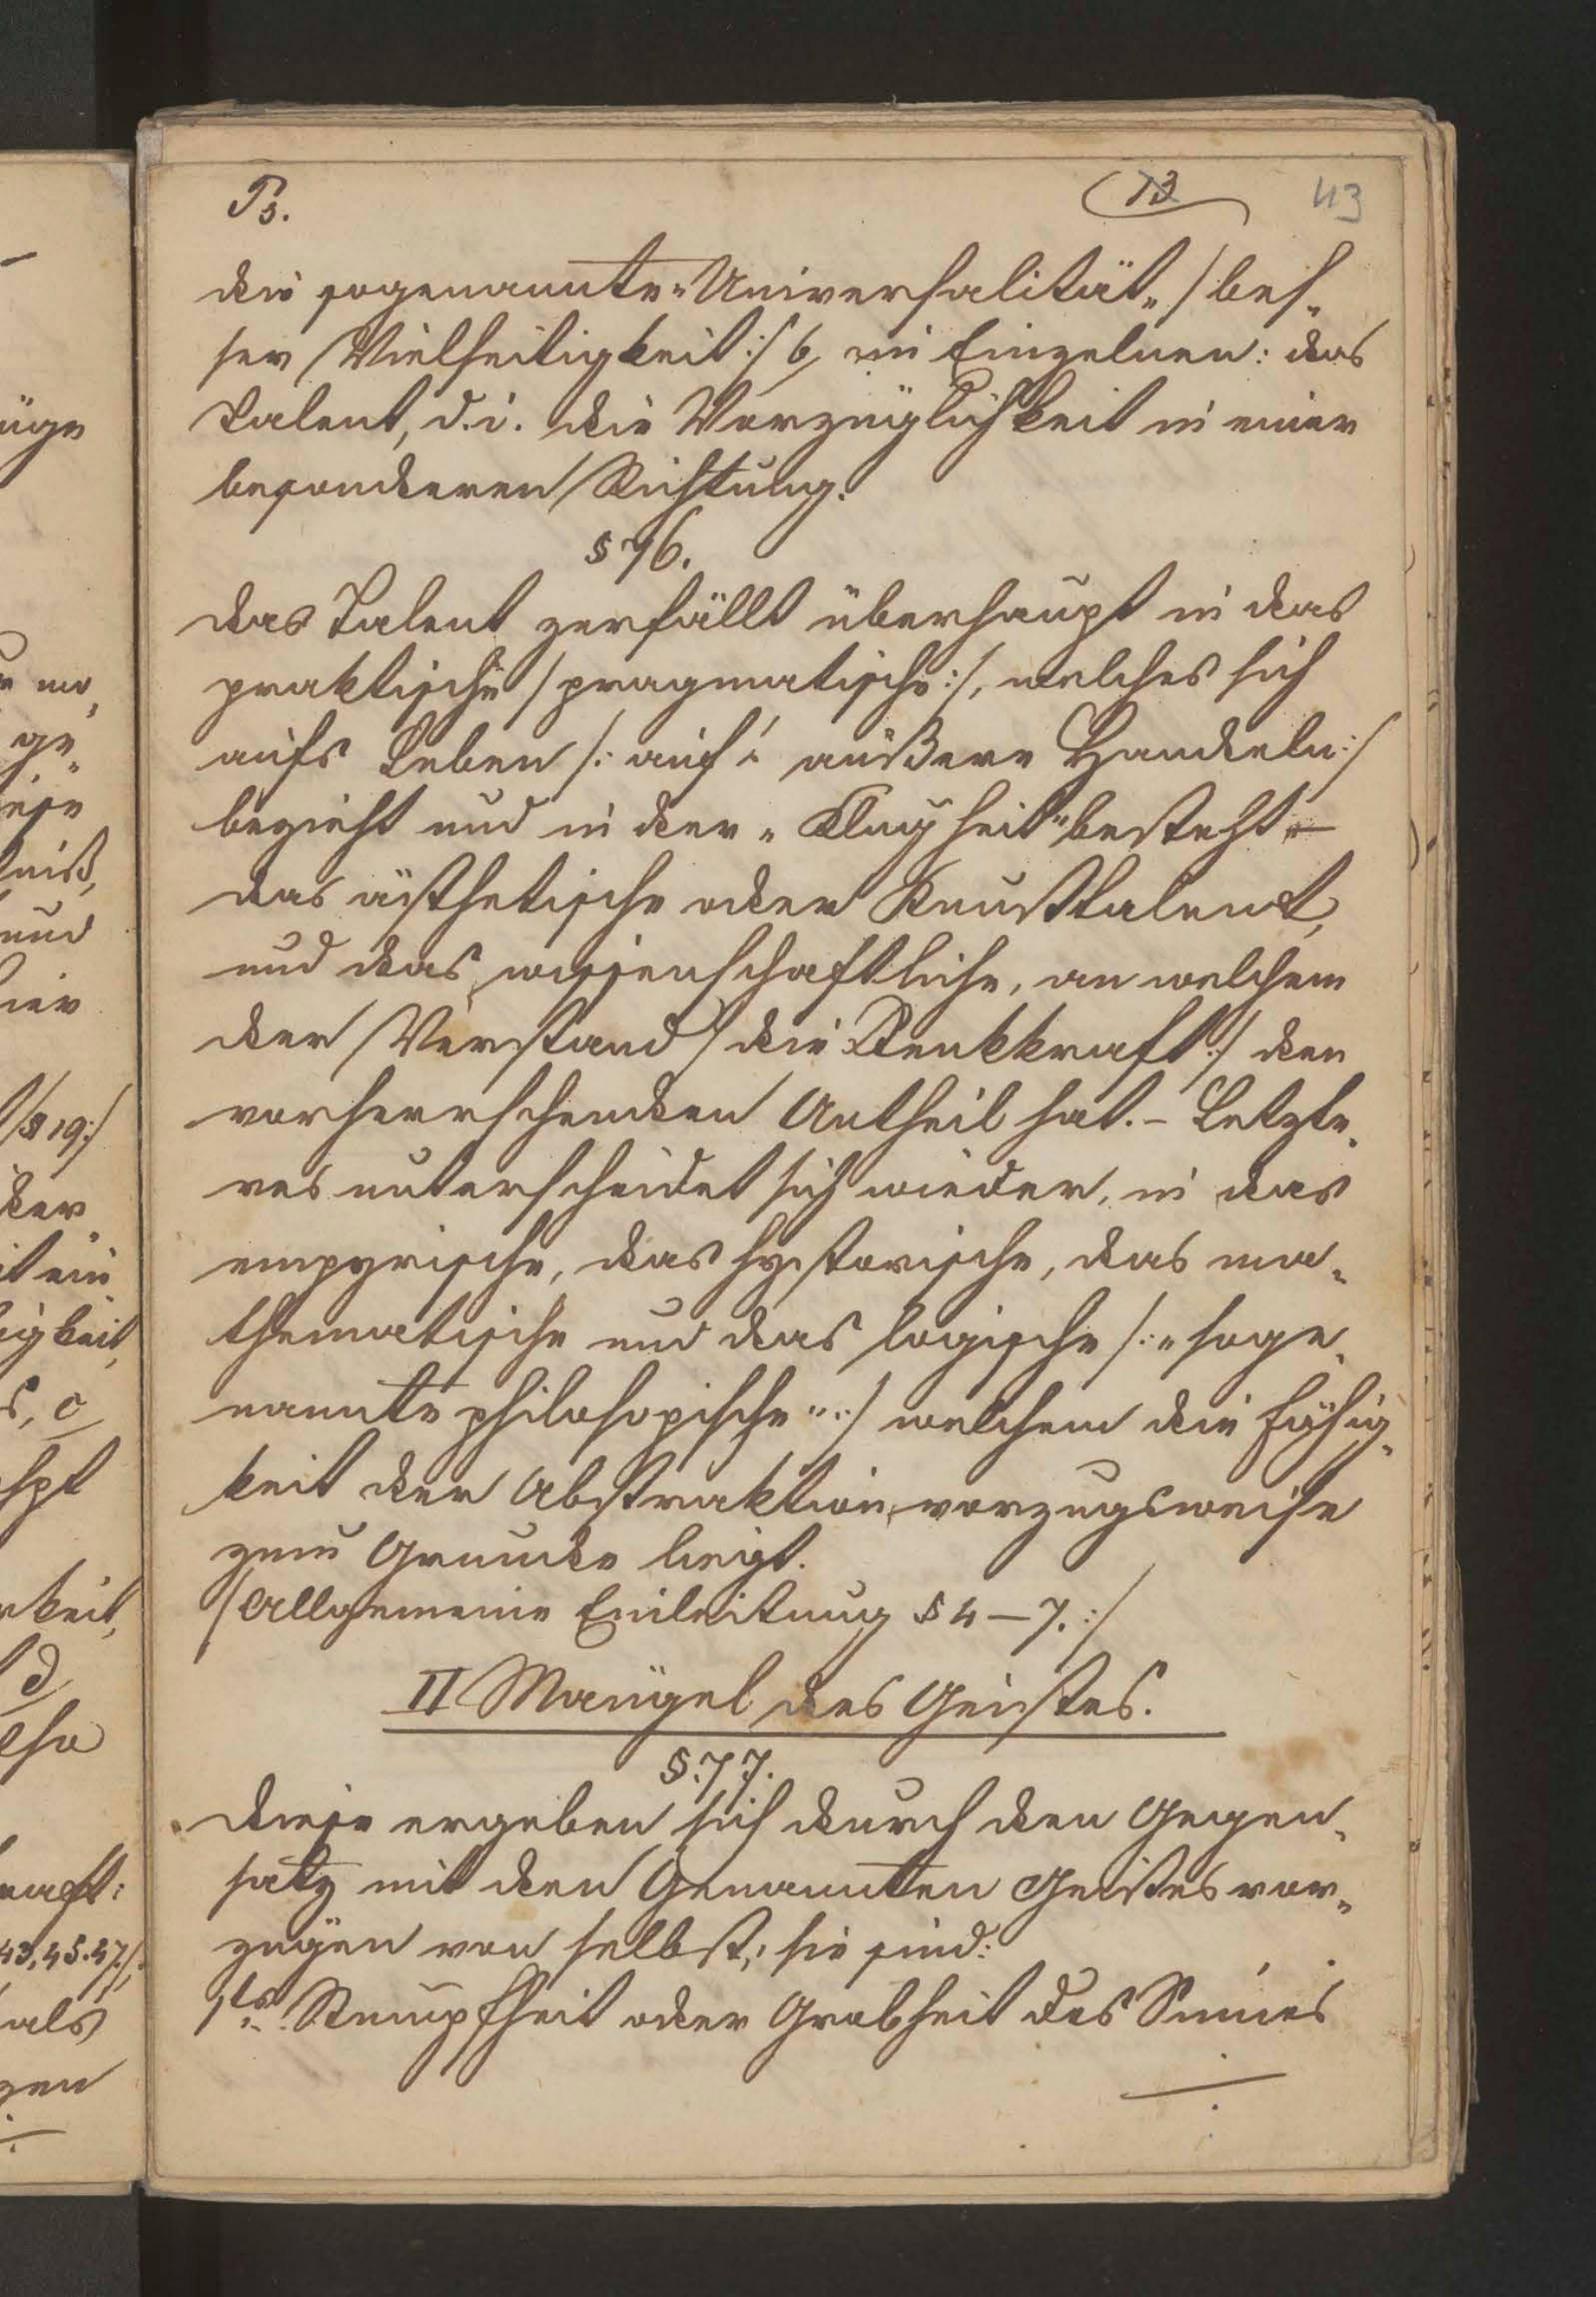 Ps. 13 43
die sogenannte „Universalität„ /: bes„
ser Vielseitigkeit :/ b, im Einzelnen: das
Talent, d. i. die Vorzüglichkeit in einer
besonderen Richtung.
§ 76.
das Talent zerfällt überhaupt in das
praktische /: pragmatische :/, welches sich
aufs Leben /: auf's äußere Handeln :/
bezieht und in der „Klugheit" besteht –
das ästhetische oder Kunsttalent,
und das wissenschaftliche, an welchem
der Verstand /: die Denkkraft :/ den
vorherrschenden Antheil hat. – Letzte„
res unterscheidet sich wieder, in das
empyrische, das hystorische, das ma„
thematische und das logische /: „soge„
nannte philosopische" :/ welchem die Fähig„
keit der Abstraktion vorzugsweise
zum Grunde liegt.
/: Allgemeine Einleitung § 4 – 7. :/
II Mängel des Geistes.
§. 77.
diese ergeben sich durch den Gegen„
satz mit den Genannten Geistesvor„
zügen von selbst; sie sind:
1tns Stumpfheit oder Grobheit des Sinnes